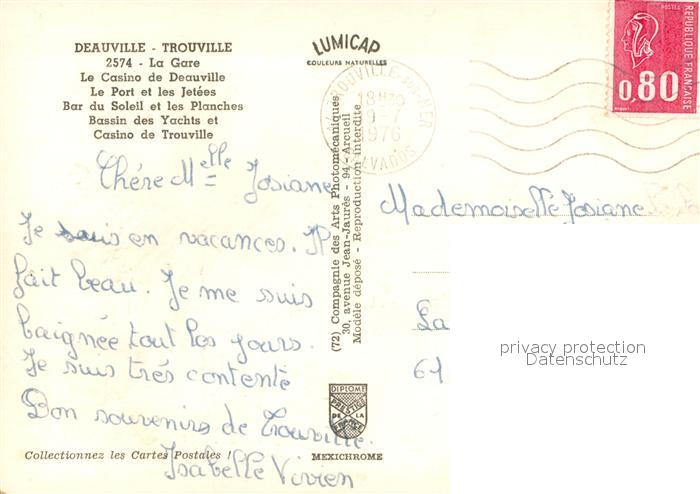 DEAUVILLE - TROUVILLE
2574 - La Gare
Le Casino de Deauville
Le Port et les Jetées
Bar du Soleil et les Planches
Bassin des Yachts et
Casino de Trouville
LUMICAP
COULEURS NATURELLES
TROUVILLE-SUR-MER
18H30
9-7
1976
CALVADOS
POSTES
REPUBLIQUE FRANÇAISE
0,80
Chére Melle Josiane
Je suis en vacances. Il
fait beau. Je me suis
baignée tout les jours.
Je suis trés contente
Bon souvenirs de Trouville.
Isabelle Vivien
(72) Compagnie des Arts Photomécaniques
30, avenue Jean-Jaurès - 94-Arcueil
Modèle déposé - Reproduction interdite
Mademoiselle Josiane
La
61
privacy protection
Datenschutz
DIPLOME
PRESTIGE
DE LA
FRANCE
Collectionnez les Cartes Postales !
MEXICHROME